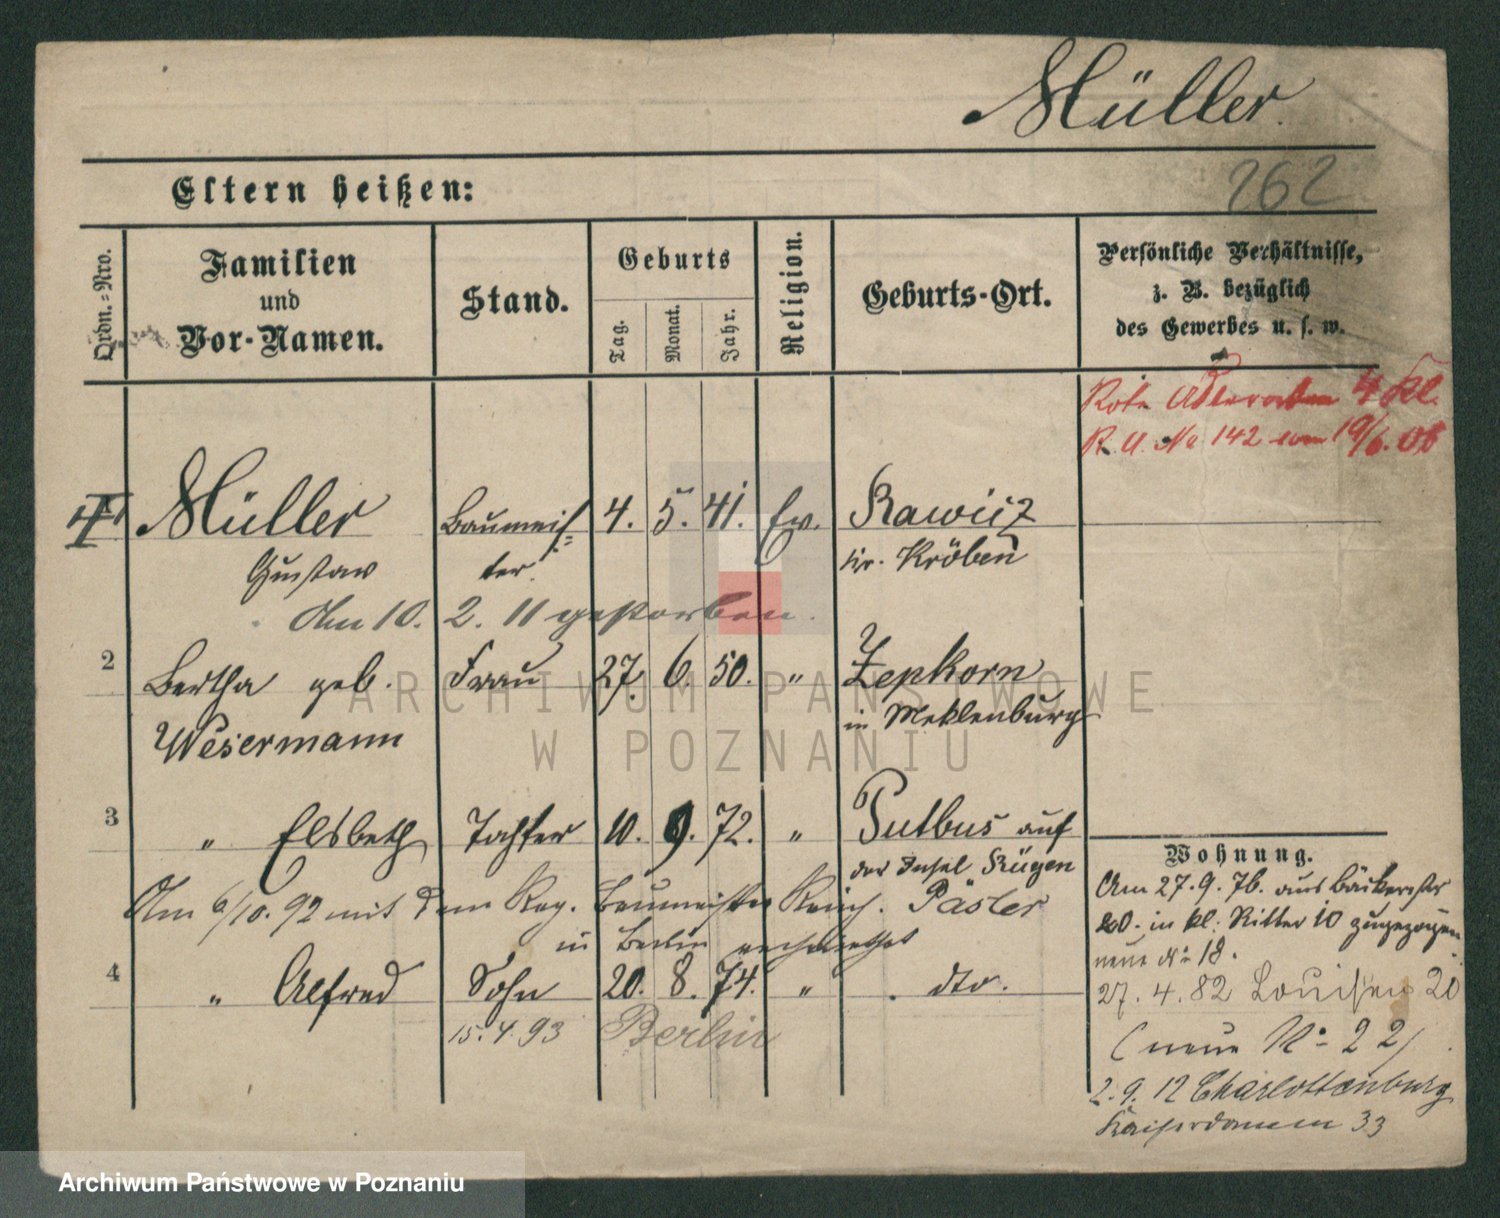 Müller.
262
Eltern heißen:
Ordn.-Nro.
Familien
und
Vor-Namen.
Stand.
Geburts
Tag.
Monat.
Jahr.
Religion.
Geburts-Ort.
Persönliche Verhältnisse,
z. B. bezüglich
des Gewerbes u. s. w.
Rote Adlerorden 4 Kl.
R. U. No 142 vom 19/6. 06
Müller Baumeis- 4. 5. 41. Ev. Rawicz
Gustav ter. Kr. Kröben
Am 10. 2. 11 gestorben.
2 Bertha geb. Frau 27. 6. 50. " Zepkorn
Wesermann in Meklenburg
3 " Elsbeth Tochter 10. 9. 72. " Putbus auf
der Insel Rügen
Am 6/10. 92 mit dem Reg. Baumeister Päsler
in Berlin verheirathet
4 " Alfred Sohn 20. 8. 74. " dto.
15. 4. 93 Berlin
Wohnung.
Am 27. 9. 76. aus Bäckerstr
20. in kl. Ritter 10 zugezogen
neue No 18.
27. 4. 82 Louisen 20
(neue No 22)
2. 9. 12 Charlottenburg
Kaiserdamm 33
ARCHIWUM PAŃSTWOWE
W POZNANIU
Archiwum Państwowe w Poznaniu